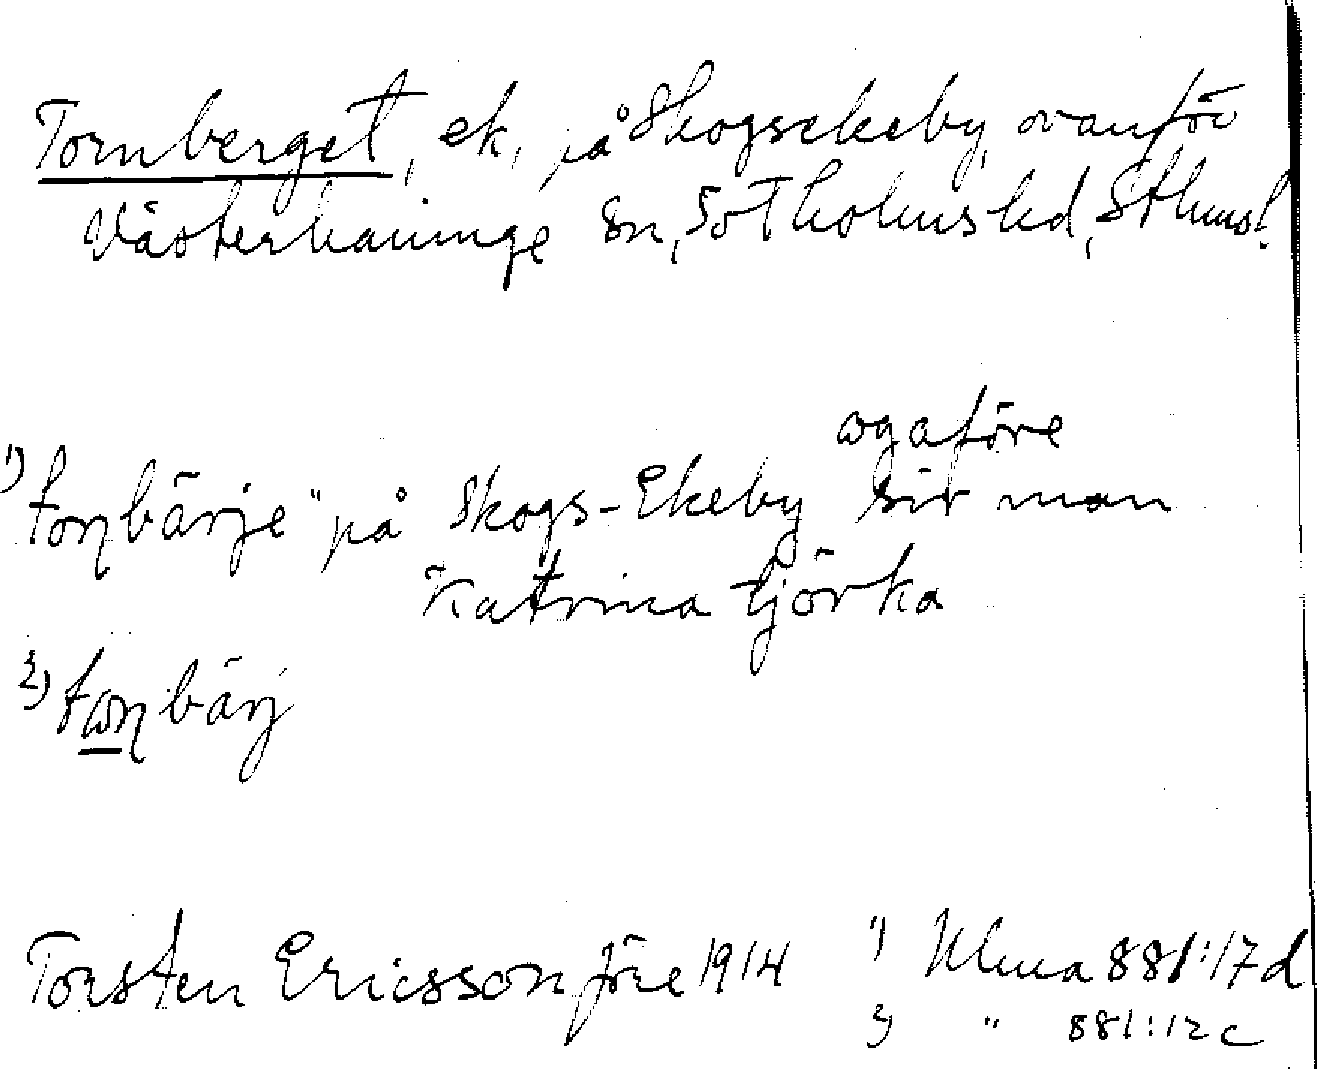 Tornberget, ek, på Skogsekeby, ovanför
Västerhaninge sn, Sotholms hd, Sthms l.
ωgaföre
1) tonbärje" på Skogs-Ekeby sir man
Katrina tjörka
2) tωnbärj
Torsten Ericsson före 1914 1) Ulma 881:17d
2) " 881:12c